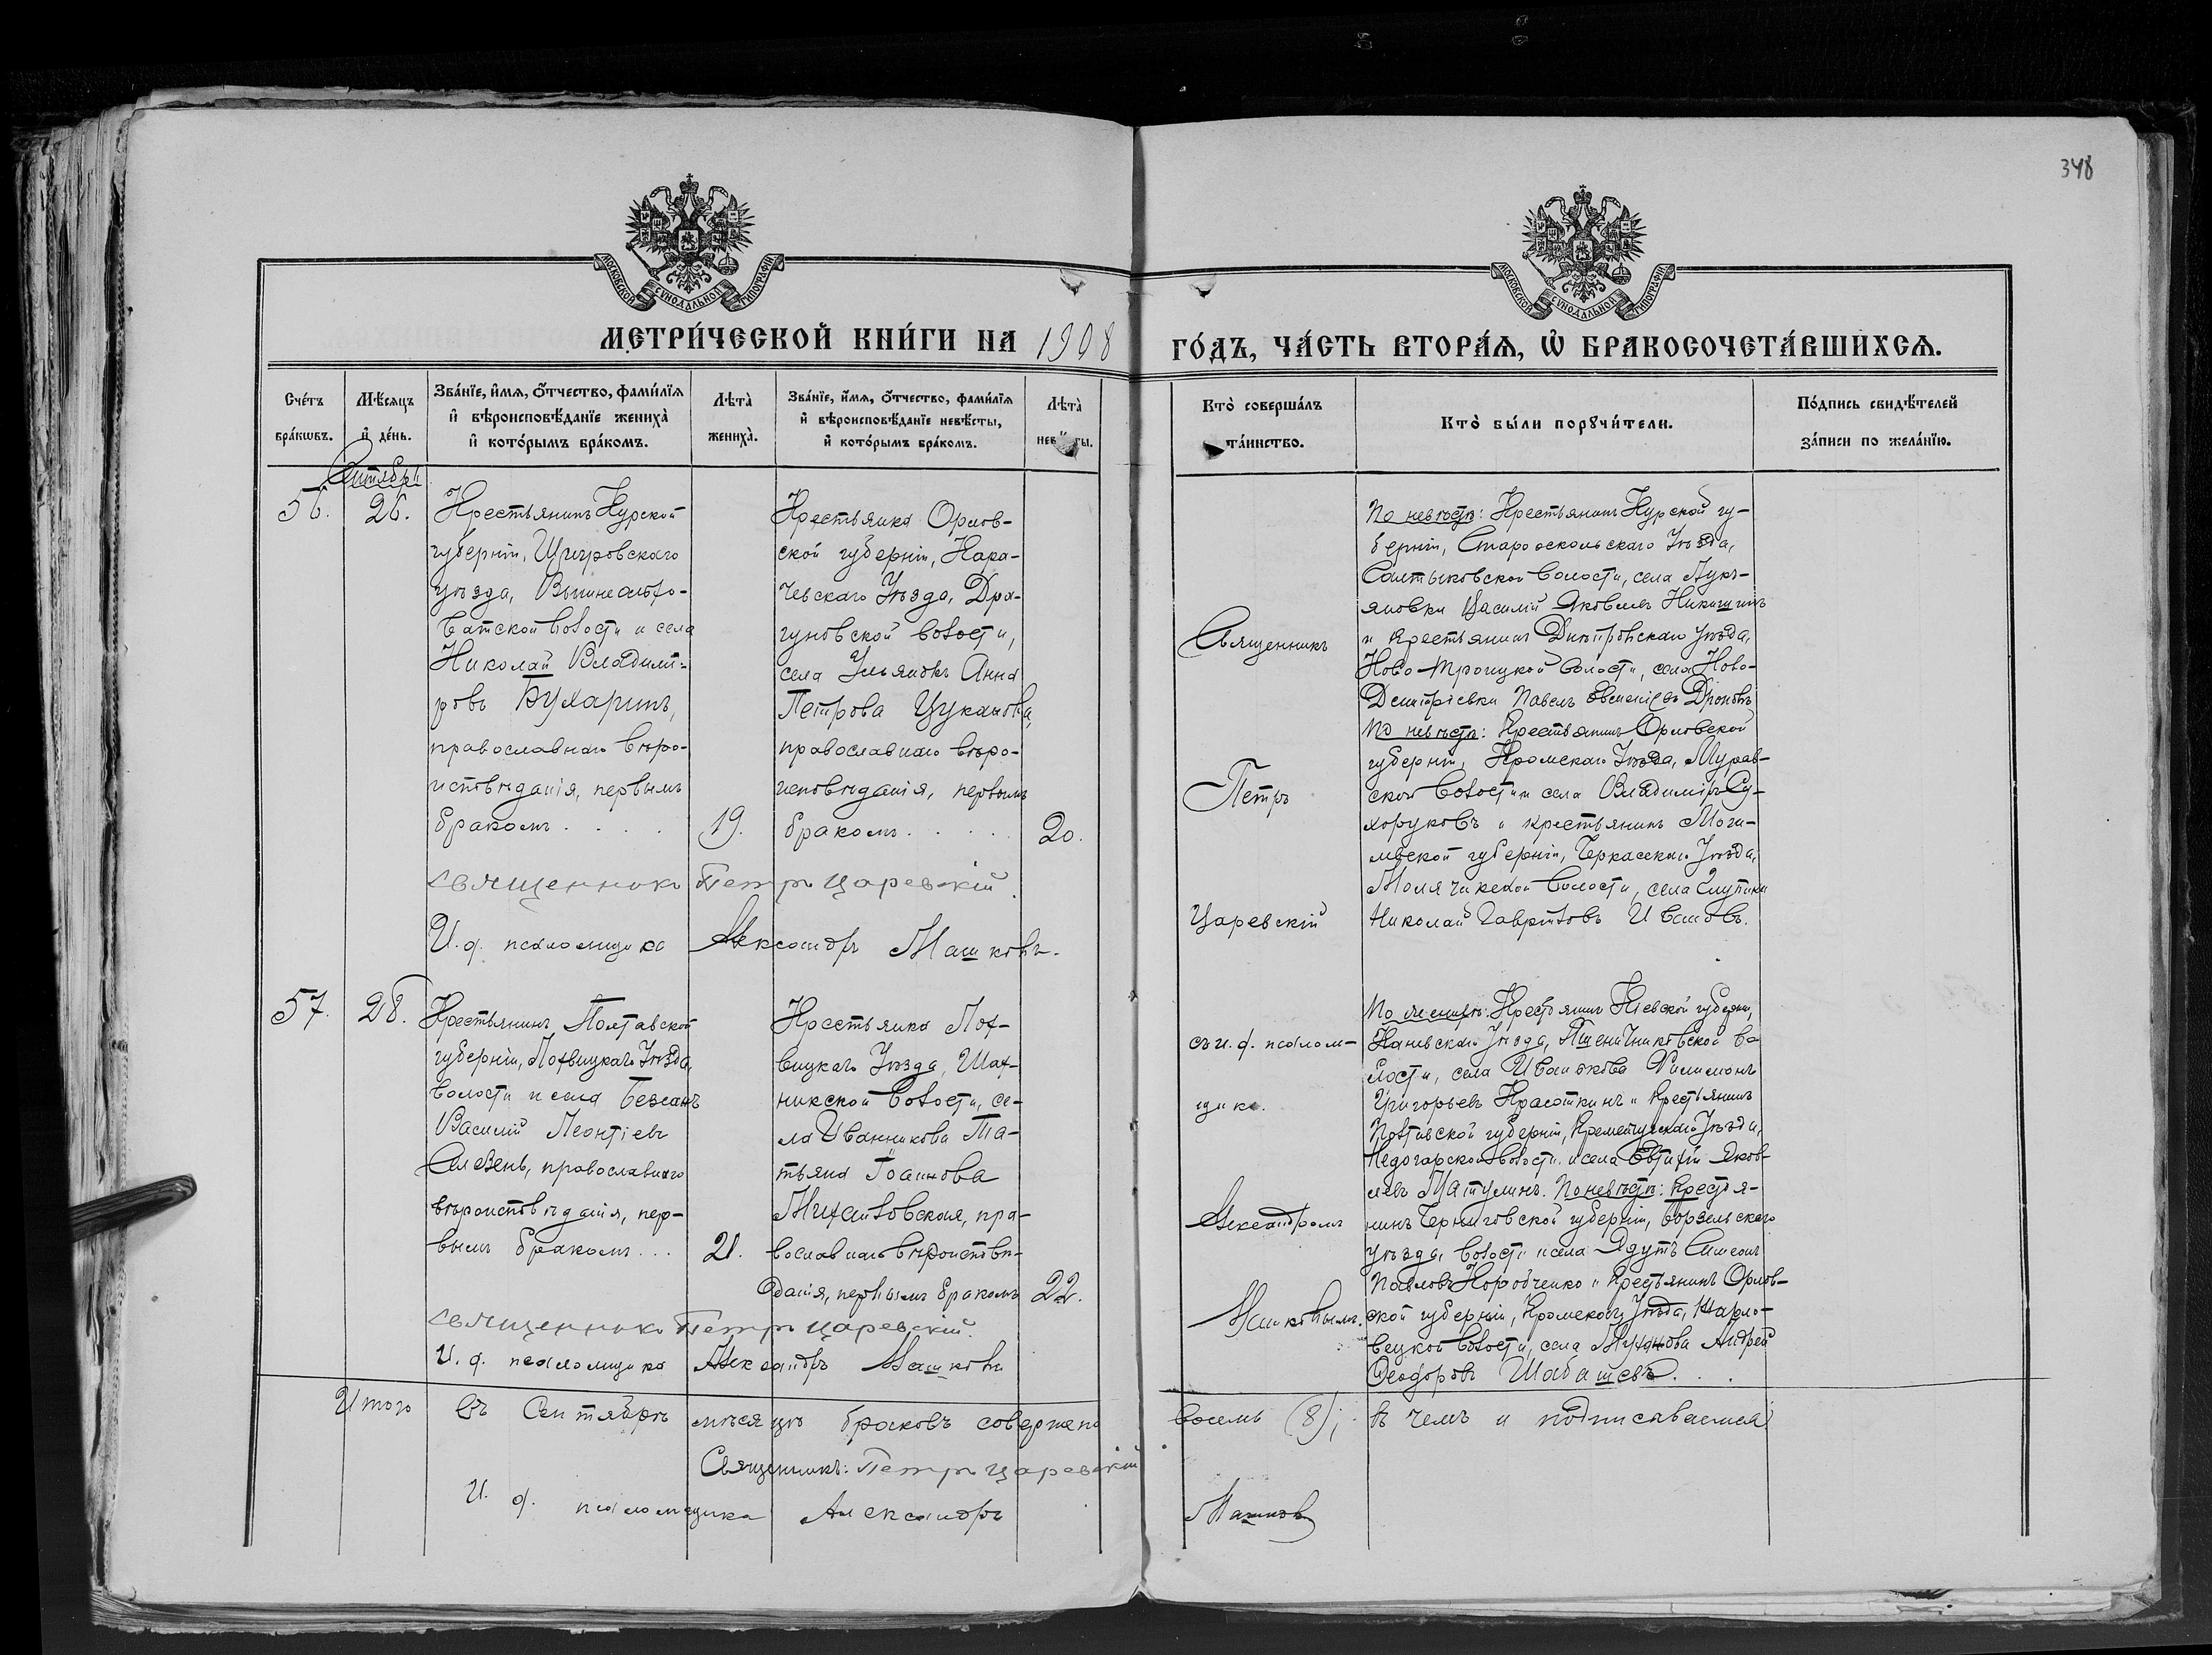 348
МОСКОВСКОЙ СУНОДАЛЬНОЙ ТИПОГРАФІИ
МОСКОВСКОЙ СУНОДАЛЬНОЙ ТИПОГРАФІИ
МЕТРИ́ЧЕСКОЙ КНИ́ГИ НА 1908 ГО́ДЪ, ЧА́СТЬ ВТОРА́Я, Ѡ БРАКОСОЧЕТА́ВШИХСЯ.
Сче́тъ бра́кѡвъ.
Мѣ́сяцъ и҆ де́нь.
Зва́нїе, и҆́мя, ѻ҆́тчество, фами́лїя
и҆ вѣроисповѣ́данїе жениха̀
и҆ кото́рымъ бра́комъ.
Лѣта̀ жениха̀.
Зва́нїе, и҆́мя, ѻ҆́тчество, фами́лїя
и҆ вѣроисповѣ́данїе невѣ́сты,
и҆ кото́рымъ бра́комъ.
Лѣта̀
Кто̀ соверша́лъ
та́инство.
Кто̀ бы́ли порꙋчи́тели.
По́дпись свидѣ́телей
за́писи по жела́нїю.
56. 26.
Крестьянинъ Курской
губерніи, Щигровскаго
уѣзда,
волости и села
Николай Владимі-
ровъ Бухаринъ,
православнаго вѣро-
исповѣданія, первымъ
бракомъ . . . .
19.
Крестьянка Орлов-
ской губерніи, Кара-
чевскаго Уѣзда, Дра-
гуновской волости,
села Ульянокъ Анна
Петрова Цуканова,
православнаго вѣро-
исповѣданія, первымъ
бракомъ . . . . .
20.
священникъ Петръ Царевскій.
И. д. псаломщика Александръ Машковъ.
Священникъ
Петръ
Царевскій
съ и. д. псалом-
щика.
Александромъ
Машковымъ.
По невѣстѣ: Крестьянинъ Курской гу-
берніи, Старооскольскаго Уѣзда,
Салтыковской волости, села Лукъ-
яновки Василій Яковлевъ Никишинъ
и крестьянинъ Днѣпровскаго уѣзда,
Ново-Троицкой волости, села Ново-
Дмитріевки Павелъ Дроновъ
По невѣстѣ: Крестьянинъ Орловской
губерніи, Кромскаго Уѣзда, Мурав-
ской волости и села Владиміръ Су-
хоруковъ и крестьянинъ Моги-
левской губерніи, Черкасскаго Уѣзда,
волости, села
Николай Гавриловъ Ивановъ.
57. 28.
Крестьянинъ Полтавской
губерніи, Лохвицкаго Уѣзда,
волости и села
Василій Леонтіевъ
православнаго
вѣроисповѣданія, пер-
вымъ бракомъ . . .
21.
Крестьянка Лох-
вицкаго Уѣзда,
волости, се-
ла Иванникова Та-
тьяна Іоаннова
Михайловская, пра-
вославнаго вѣроисповѣ-
данія, первымъ бракомъ
22.
священникъ Петръ Царевскій.
И. д. псаломщика Александръ Машковъ
По женихѣ: Крестьянинъ Кіевской губерніи,
Каневскаго Уѣзда, Пшеничниковской во-
лости, села Иванькова Филимонъ
Григорьевъ Красоткинъ и Крестьянинъ
Полтавской губерніи, Кременчугскаго Уѣзда,
Недогарской волости и села Евтихій Яков-
левъ По невѣстѣ: Крестья-
нинъ Черниговской губерніи, Борзенскаго
уѣзда, волости и села Ядутъ Симеонъ
Павловъ Коробченко и Крестьянинъ Орлов-
ской губерніи, Кромскаго Уѣзда,
волости, села Андрей
Ѳеодоровъ Шабашевъ. . .
Итого въ Сентябрѣ мѣсяцѣ браковъ совершено восемь (8); въ чемъ и подписываемся:
Священникъ: Петръ Царевскій
И. д. псаломщика Александръ Машковъ